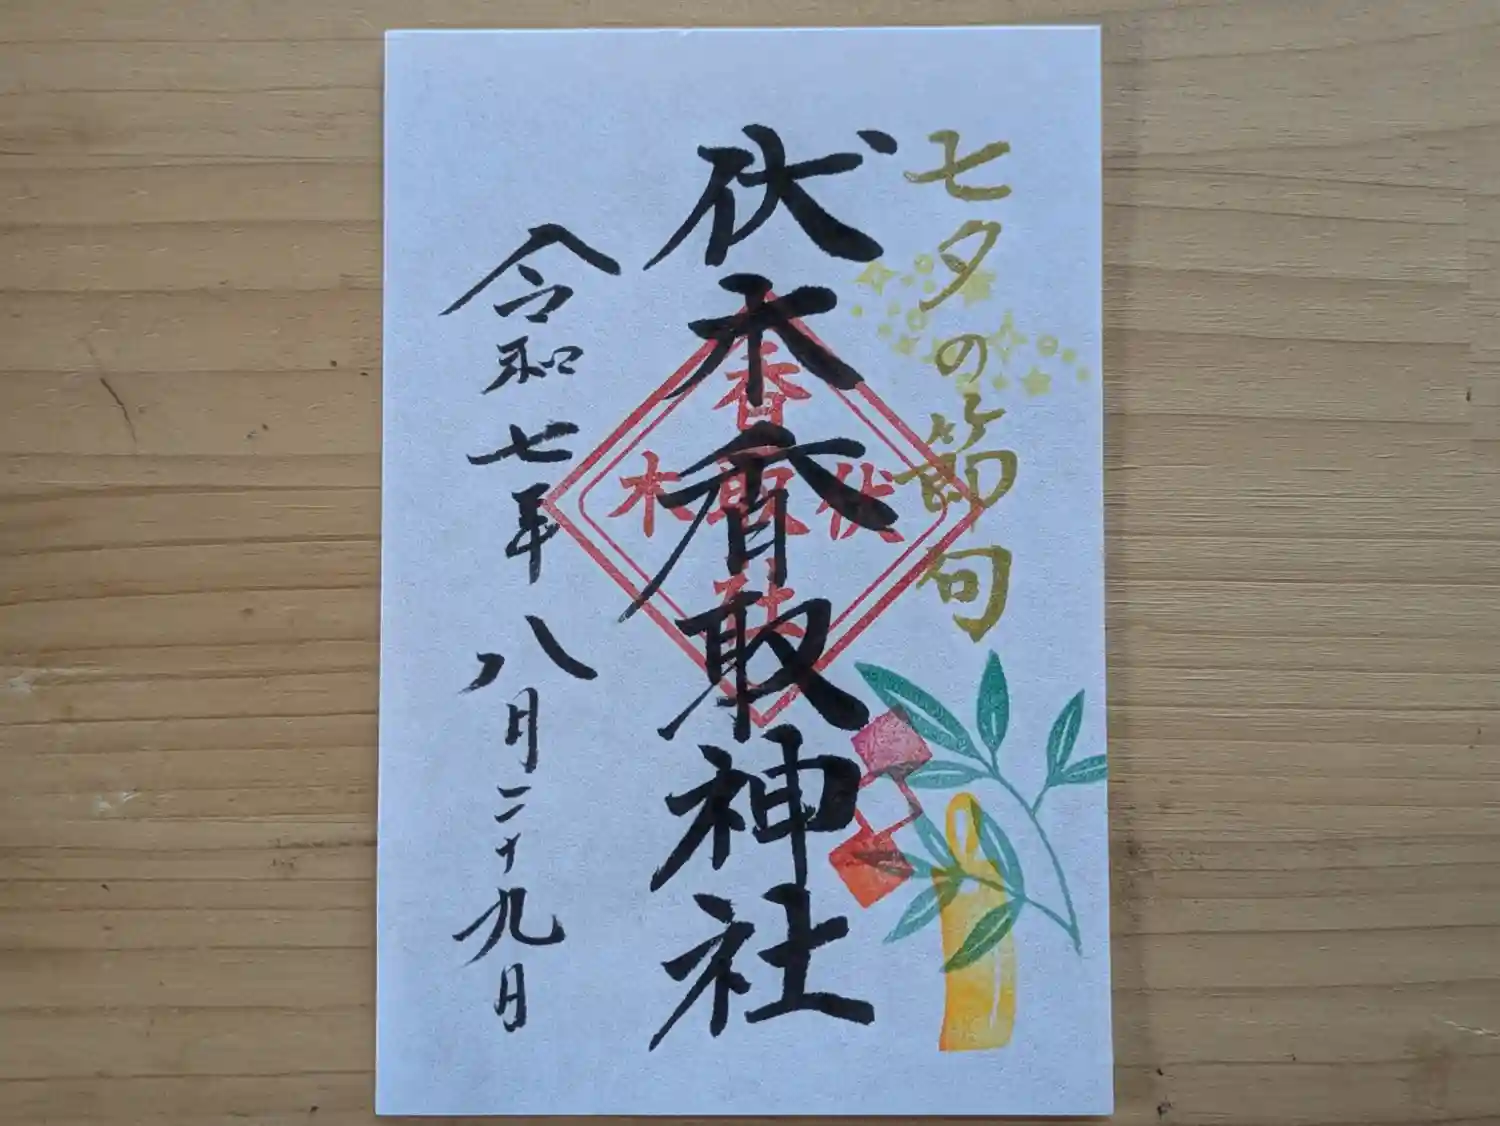 七夕の節句
伏木香取神社
香
伏取木
社
令和七年八月二十九日